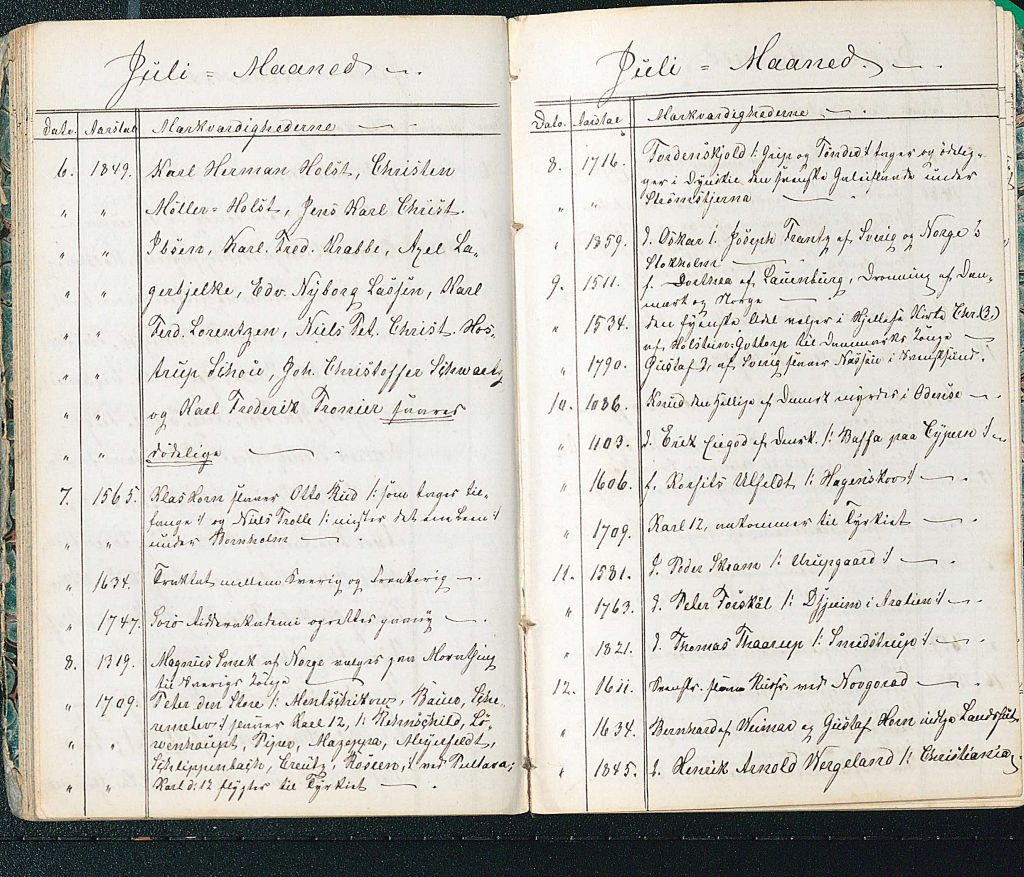 Juli = Maaned
Dato. Aarstal Markværdighederne
6. 1849. Karl Herman Holst, Christen
" " Möller = Holst, Jens Karl Christ.
" " Ibsen, Karl. Fred. Krabbe, Axel La-
" " gertjelke, Edv. Nyborg Lassen, Karl
" " Ferd. Lorentzen, Niels Pet. Christ. Hos-
" " trup Schou, Joh. Christoffer Schwartz
" " og Karl Frederik Tronier saares
" " dödelige
7. 1565. Klas Horn slaaer Otto Rud /: som tages til-
fange :/ og Niels Trolle /: mister det ene Been :/
" " under Bornholm
" 1634. Traktat mellem Sverig og Frankerig
" 1747. Sorö Ridderakademi oprettes paany
8. 1319. Magnus Smek af Norge vælges paa Morathing
til Sverigs Konge
" 1709. Peter den Store /: Mentschikow, Bauer, Sche-
remetev :/ slaaer Karl 12, /: Rehnschild, Lö-
" " wenhaupt, Piper, Mazeppa, Meyerfeldt,
Schlippenbach, Creutz, Roseen, :/ ved Pultava;
" " Karl d: 12 flygter til Tyrkiet
Juli = Maaned.
Dato. Aarstal Markværdighederne
8. 1716. Tordenskjold /: Grip og Tönder :/ tager og ödelæg-
ger i Dynekil den svenske Galeiflaade under
" " Strömstjerna
" 1859. d. Oskar 1. Joseph Frantz af Sverig og Norge i
Stokholm
9. 1511. f. Dorthea af Lauenburg, Dronning af Dan-
mark og Norge
" 1534. den fyenske Adel vælger i Hjellese Kirke Chr. (3.)
af Holsteen-Gottorp til Danmarks Konge
" 1790. Gustaf 3, af Sverig slaaer Nassau i Svensksund.
10. 1086. Knud den Hellige af Danmk myrdes i Odense
" 1103. d. Erik Eiegod af Danmk. /: Baffa paa Cypern :/
" 1606. f. Korfits Ulfeldt /: Hagenskov :/
" 1709. Karl 12, ankommer til Tyrkiet
11. 1581. d. Peder Skram /: Urupgaard :/
" 1763. d. Peter Forskål /: Djjerim i Arabien :/
" 1821. d. Thomas Thaarup /: Smidstrup :/
12. 1611. Svenske slaaer Russr. ved Novgorod
" 1634. Bernhard af Weimar og Gustaf Horn indtge Landshut
" 1845. d. Henrik Arnold Wergeland /: Christiania